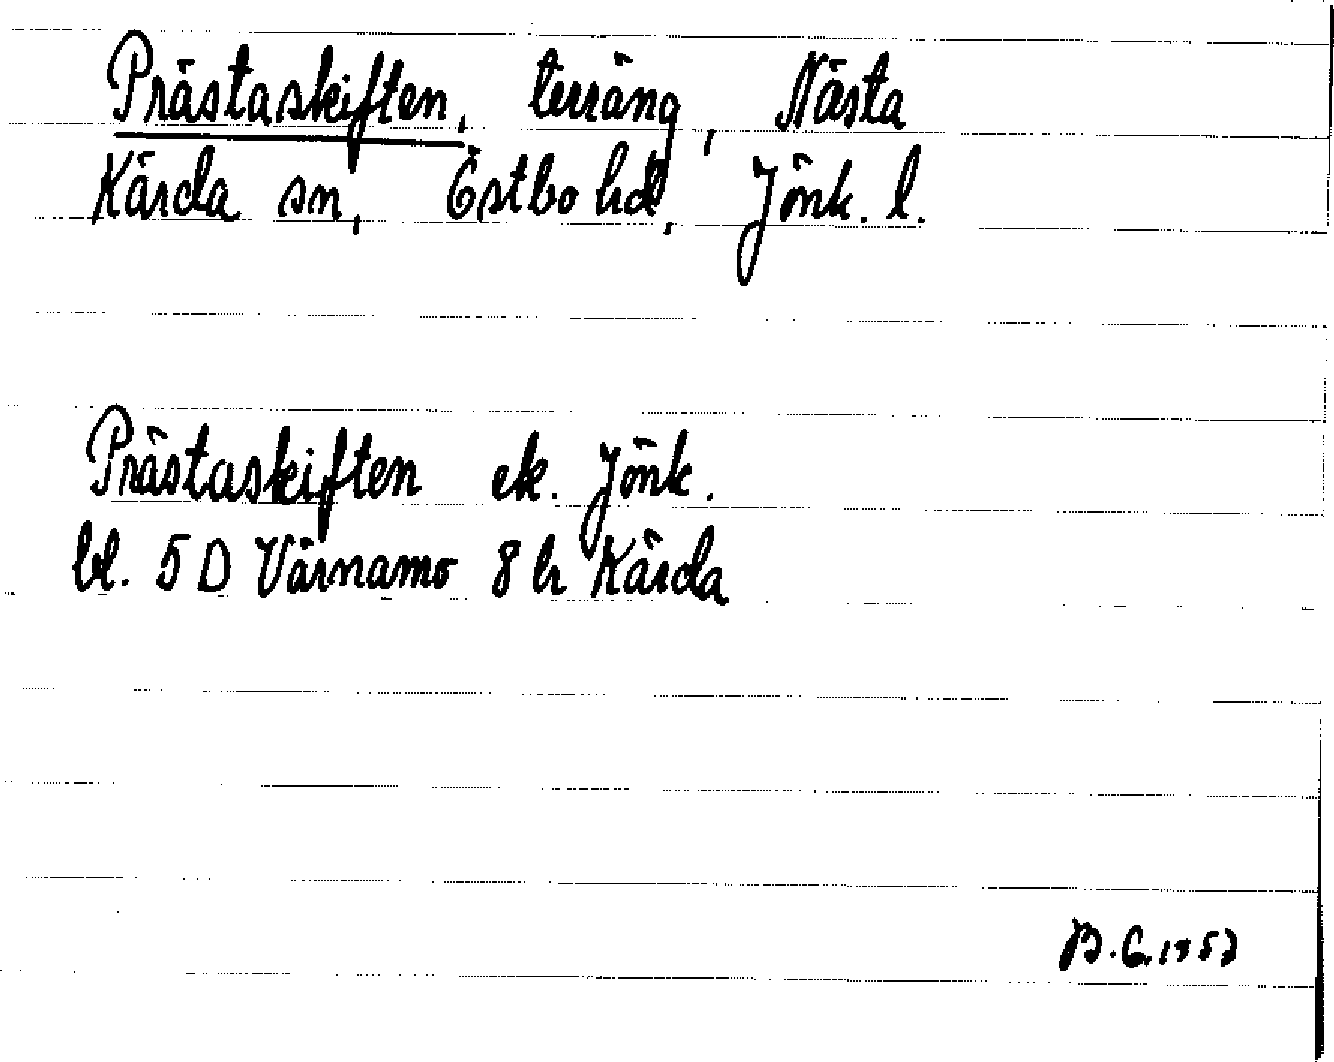 Prästaskiften, terräng, Nästa
Kärda sn, Östbo hd, Jönk. l.
Prästaskiften ek. Jönk.
bl. 5 D Värnamo 8 h Kärda
B.G.